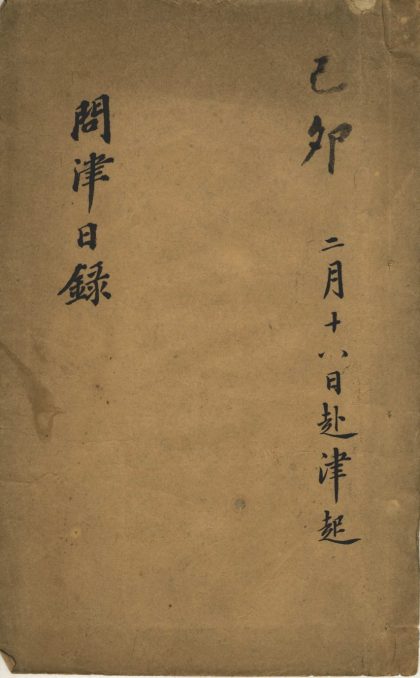 己卯 二月十八日赴津起
問津日錄